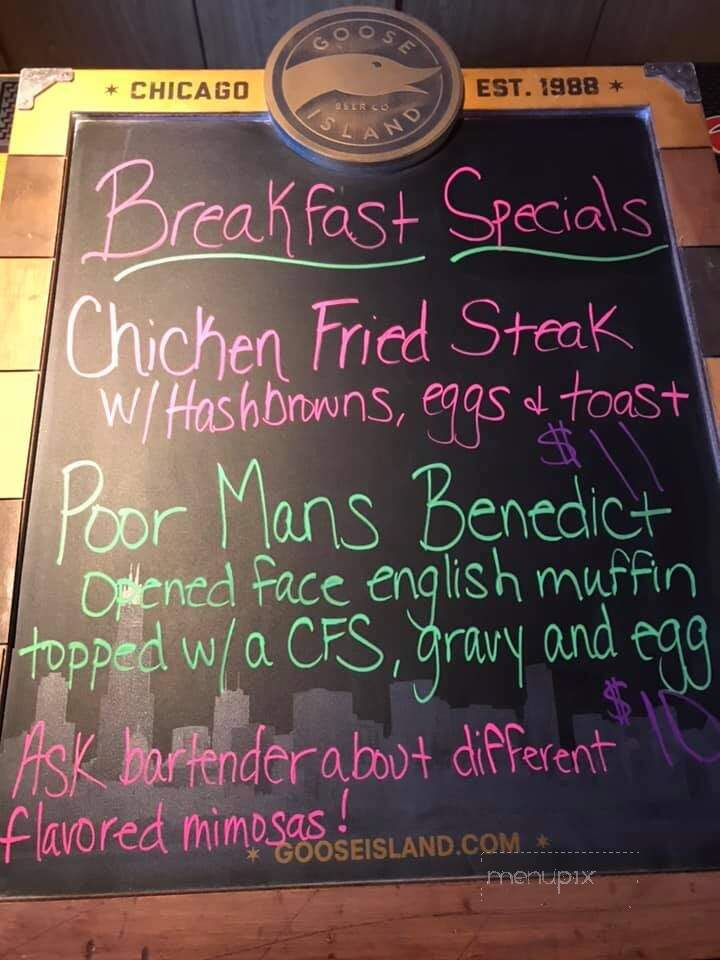 GOOSE
BEER CO
ISLAND
* CHICAGO
EST. 1988 *
Breakfast Specials
Chicken Fried Steak
w/ Hashbrowns, eggs & toast
$11
Poor Mans Benedict
opened face english muffin
topped w/ a CFS, gravy and egg
$10
Ask bartender about different
flavored mimosas!
* GOOSEISLAND.COM *
menupix